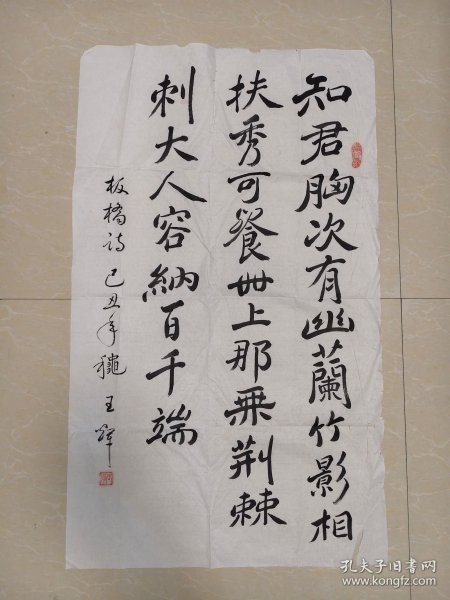 知君胸次有幽蘭竹影相
扶秀可餐世上那無荆棘
刺大人容納百千端
板橋詩 己丑年穐 王輝
孔夫子旧书网
www.kongfz.com